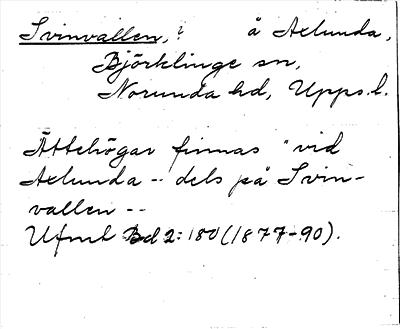 Svinvallen, ? å Axlunda,
Björklinge sn,
Norunda hd, Upps. l.
Ättehögar finnas "vid
Axlunda -- dels på Svin-
vallen --
Ufmt Bd 2: 180 (1877-90).